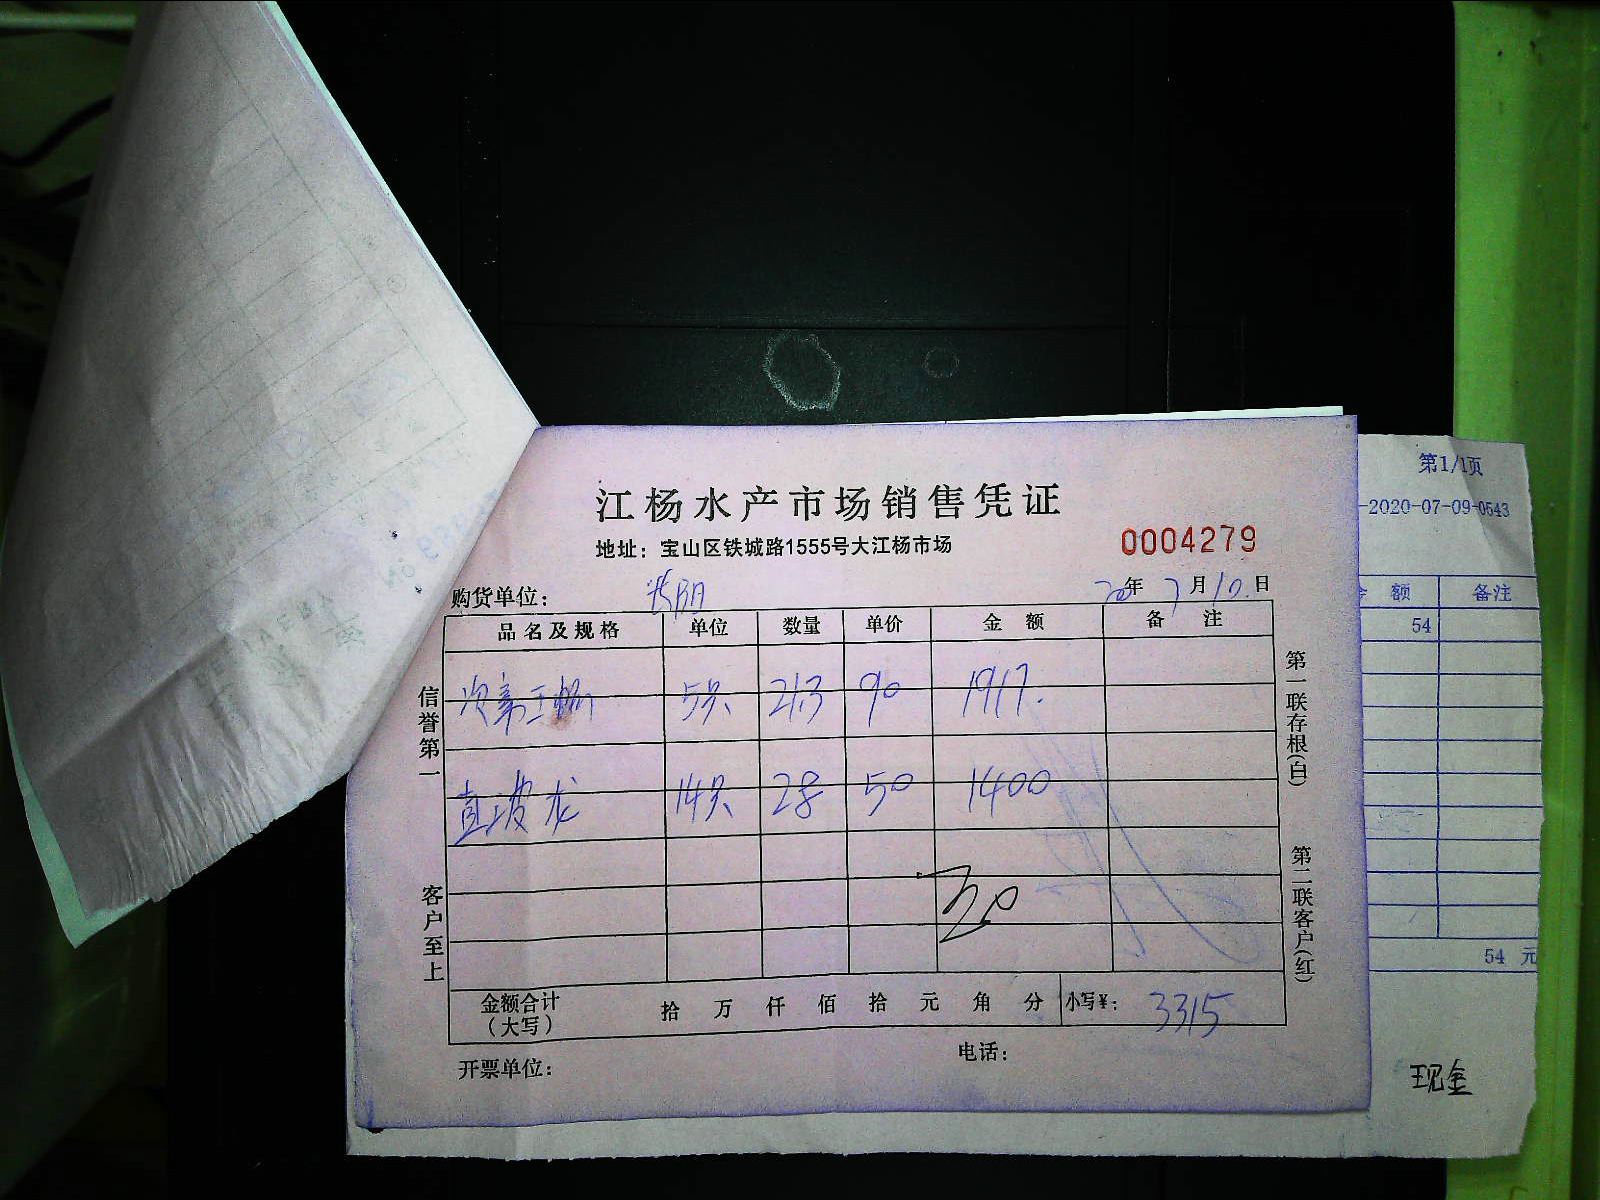 江杨水产市场销售凭证
地址：宝山区铁城路1555号大江杨市场
0004279
购货单位：
20年 7月10日
品名及规格 单位 数量 单价 金额 备注
5只 21.3 90 1917.
直波龙 14只 28 50 1400
金额合计（大写） 拾 万 仟 佰 拾 元 角 分 小写¥： 3315
开票单位： 电话：
信誉第一 客户至上
第一联存根(白) 第二联客户(红)
第1/1页
-2020-07-09-0543
额 备注
54
54 元
现金